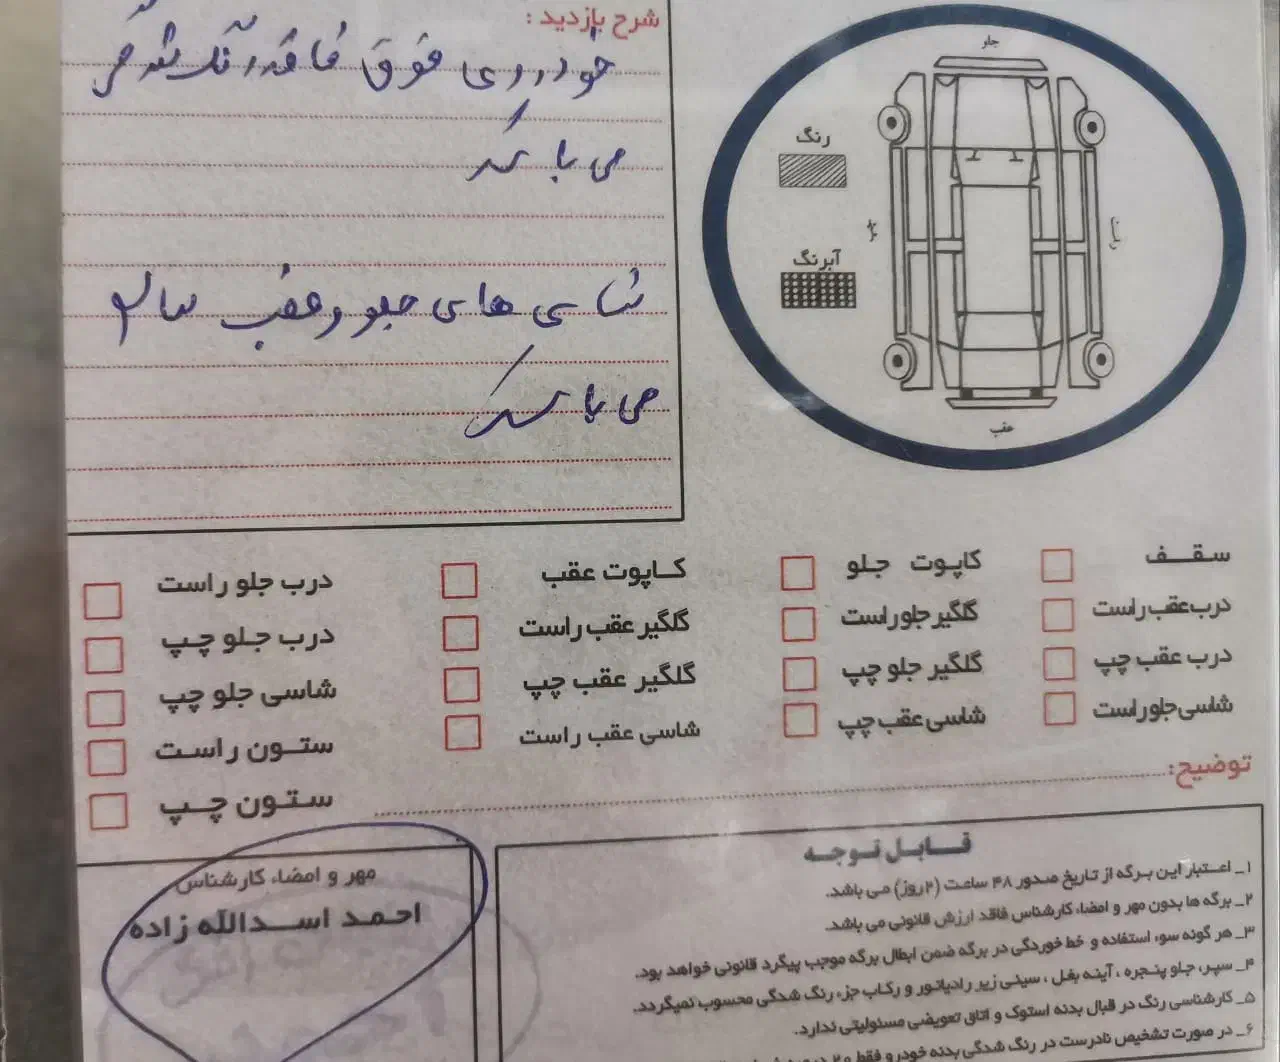 شرح بازدید :
خودروی فوق فاقد رنگ شدگی
می باشد
شاسی های جلو و عقب سالم
می باشد
جلو
رنگ
آبرنگ
عقب
سقف
کاپوت جلو
کاپوت عقب
درب جلو راست
درب عقب راست
گلگیر جلو راست
گلگیر عقب راست
درب جلو چپ
درب عقب چپ
گلگیر جلو چپ
گلگیر عقب چپ
شاسی جلو چپ
شاسی جلو راست
شاسی عقب چپ
شاسی عقب راست
ستون راست
ستون چپ
توضیح:
قابل توجه
۱_ اعتبار این برگه از تاریخ صدور ۴۸ ساعت (۲ روز) می باشد.
۲_ برگه ها بدون مهر و امضاء کارشناس فاقد ارزش قانونی می باشد.
۳_ هر گونه سوء استفاده و خط خوردگی در برگه ضمن ابطال برگه موجب پیگرد قانونی خواهد بود.
۴_ سپر، جلو پنجره ، آینه بغل ، سینی زیر رادیاتور و رکاب جزء رنگ شدگی محسوب نمیگردد.
۵_ کارشناسی رنگ در قبال بدنه استوک و اتاق تعویضی مسئولیتی ندارد.
۶_ در صورت تشخیص نادرست در رنگ شدگی بدنه خودرو فقط ۲۰
مهر و امضاء کارشناس
احمد اسدالله زاده